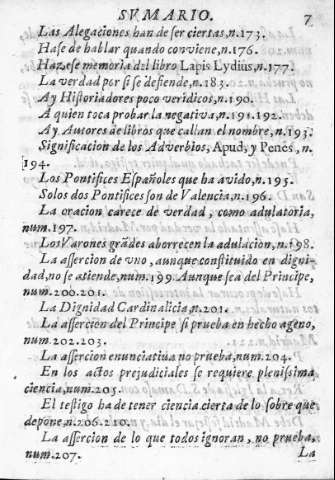 SVMARIO. 7
Las Alegaciones han de ser ciertas, n.173.
Hase de hablar quando conviene, n.176.
Hazese memoria del libro Lapis Lydius, n.177.
La verdad por si se defiende, n.183.
Ay Historiadores poco veridicos, n.190.
A quien toca probar la negativa, n.191.192.
Ay Autores de libros que callan el nombre, n.193.
Significacion de los Adverbios, Apud, y Penes, n.
194.
Los Pontifices Españoles que ha avido, n.195.
Solos dos Pontifices son de Valencia, n.196.
La oracion carece de verdad, como adulatoria,
num.197.
Los Varones grãdes aborrecen la adulacion, n.198.
La assercion de vno, aunque constituido en digni-
dad, no se atiende, num.199. Aunque sea del Principe,
num.200.201.
La Dignidad Cardinalicia, n.201.
La assercion del Principe si prueba en hecho ageno,
num.202.203.
La assercion enunciatiua no prueba, num.204.
En los actos prejudiciales se requiere plenissima
ciencia, num.205.
El testigo ha de tener ciencia cierta de lo sobre que
depone, n.206.210.
La assercion de lo que todos ignoran, no prueba,
num.207. La